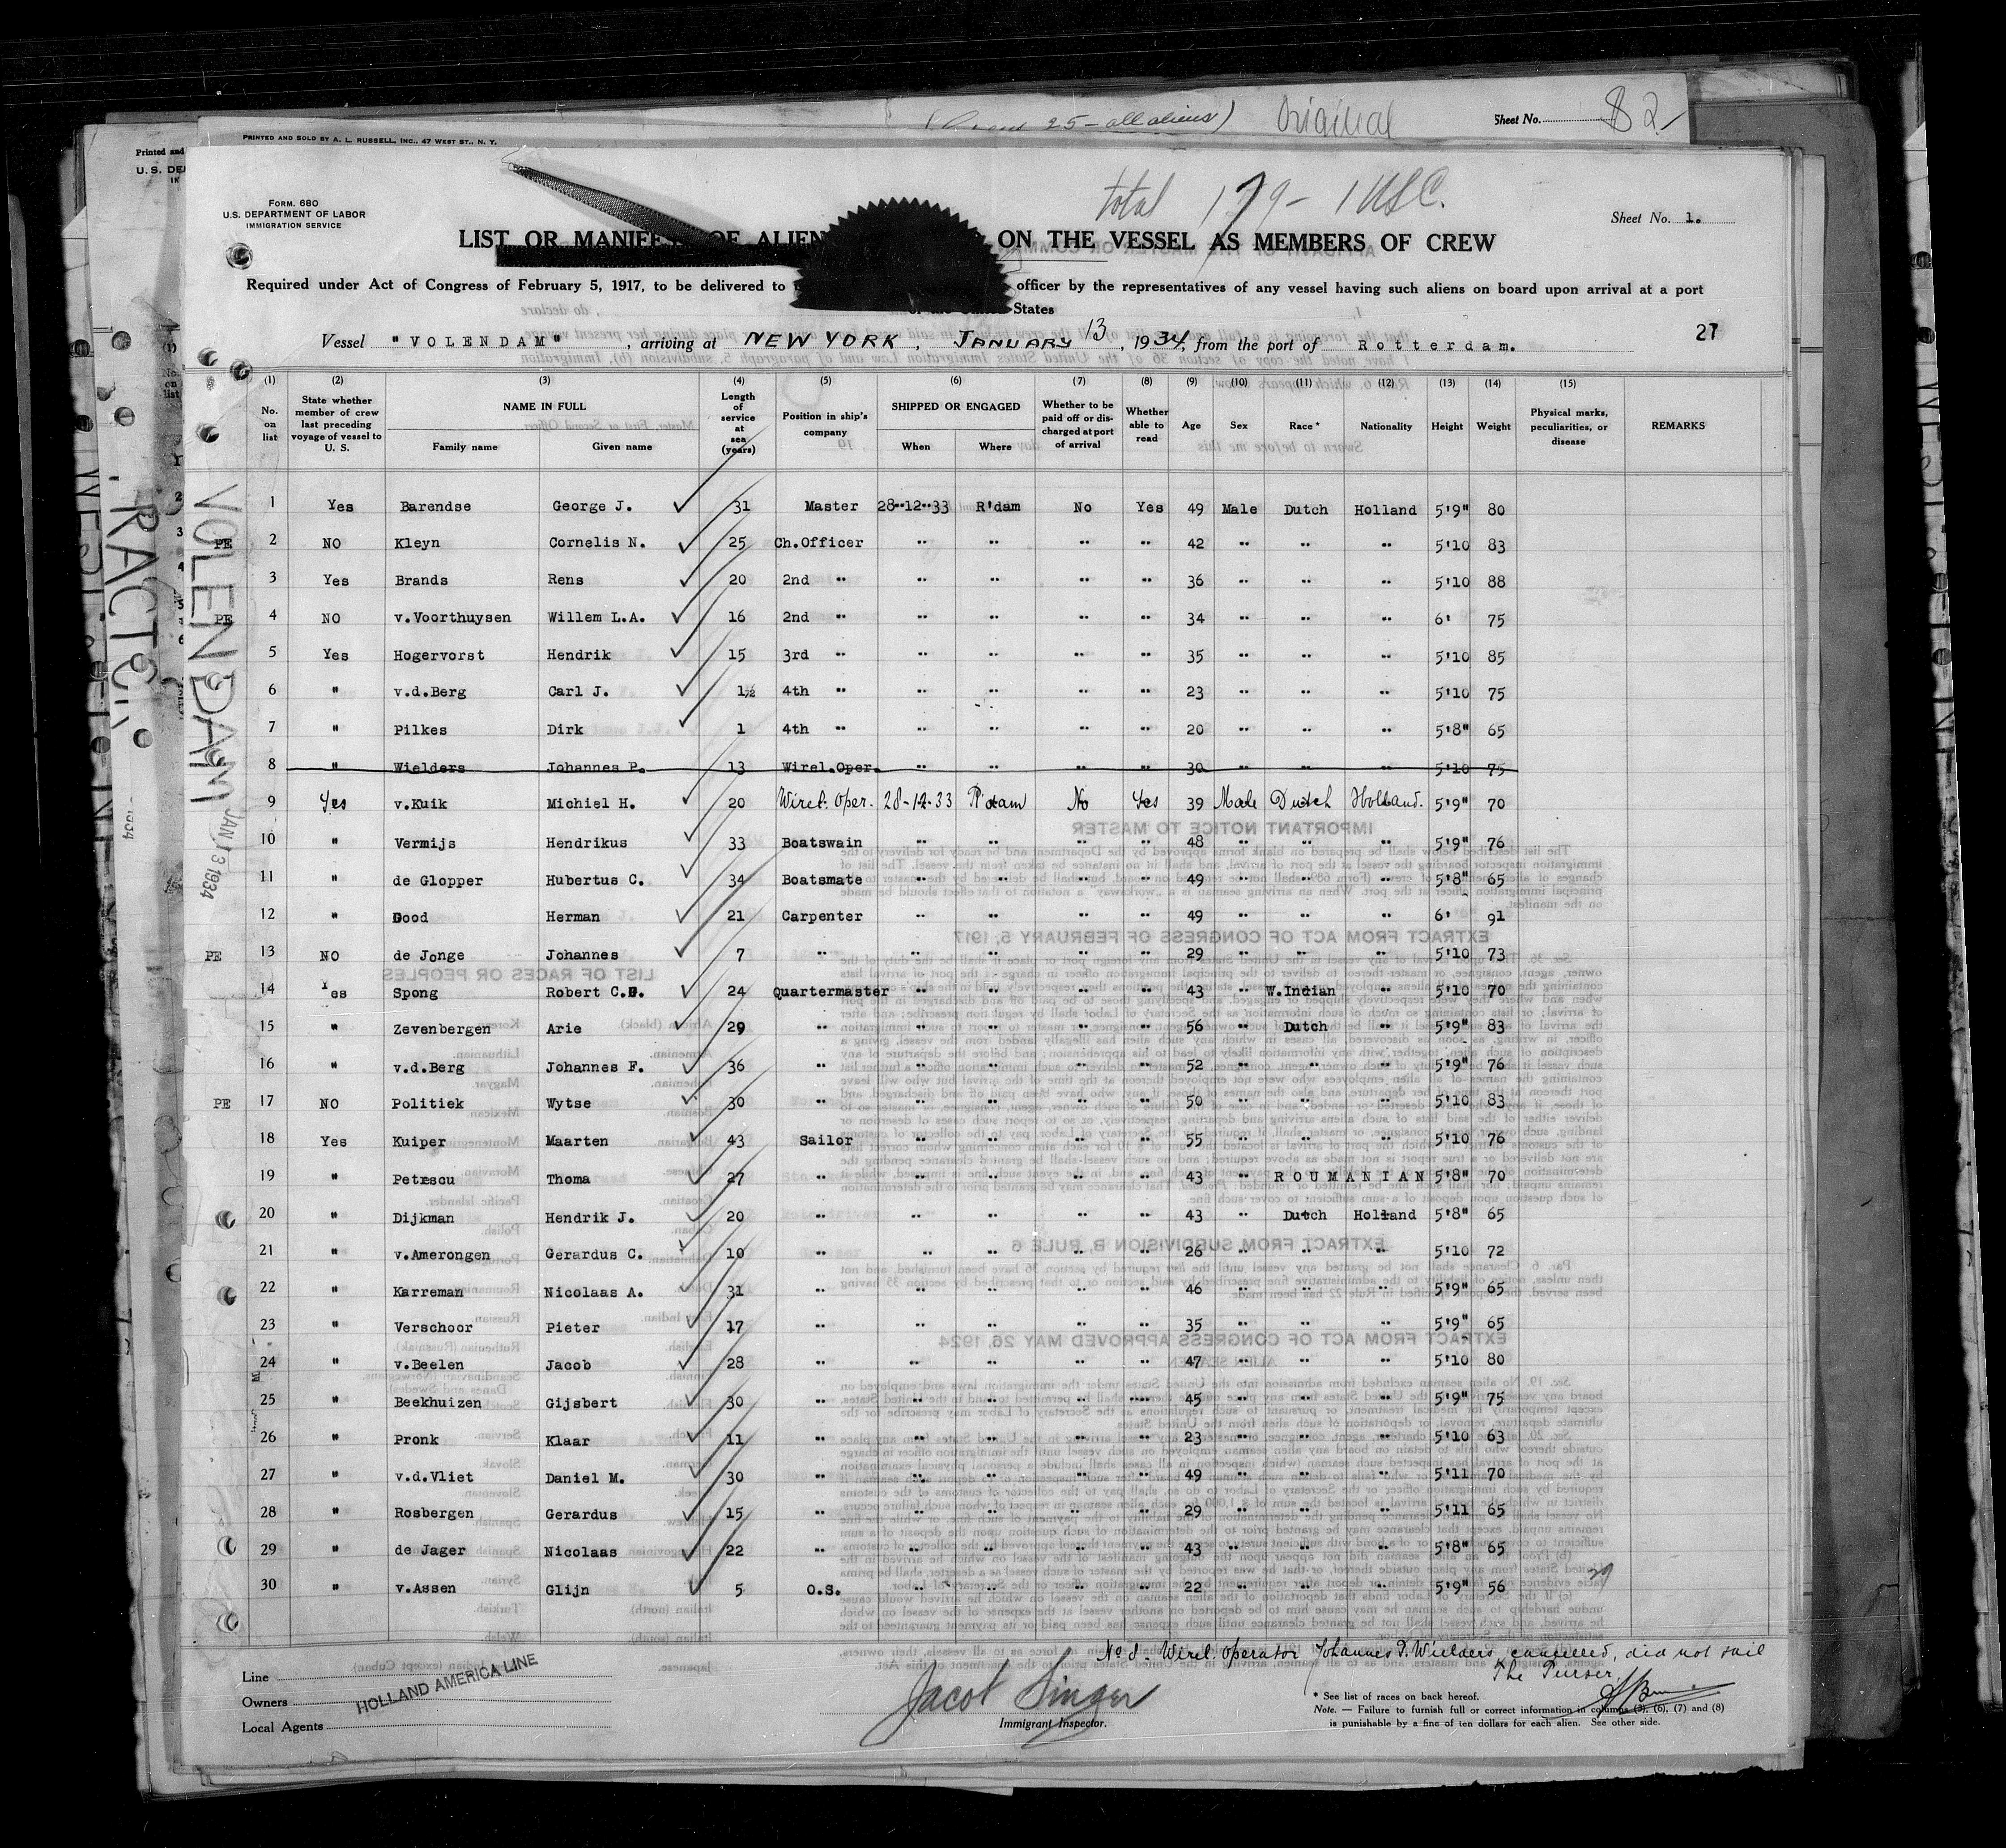 Original
Sheet No. 82
PRINTED AND SOLD BY A. L. RUSSELL, INC., 47 WEST ST., N. Y.
Printed and
U. S. DE
total 179 - 1 USC.
FORM. 680
U.S. DEPARTMENT OF LABOR
IMMIGRATION SERVICE
Sheet No. 1.
LIST OR MANIFEST OF ALIEN ON THE VESSEL AS MEMBERS OF CREW
Required under Act of Congress of February 5, 1917, to be delivered to officer by the representatives of any vessel having such aliens on board upon arrival at a port
States
Vessel "VOLENDAM", arriving at NEW YORK, JANUARY 13, 1934, from the port of Rotterdam. 27
(1) (2) (3) (4) (5) (6) (7) (8) (9) (10) (11) (12) (13) (14) (15)
No. on list State whether member of crew last preceding voyage of vessel to U. S. NAME IN FULL Family name Given name Length of service at sea (years) Position in ship's company SHIPPED OR ENGAGED When Where Whether to be paid off or discharged at port of arrival Whether able to read Age Sex Race* Nationality Height Weight Physical marks, peculiarities, or disease REMARKS
1 Yes Barendse George J. 31 Master 28-12-33 R'dam No Yes 49 Male Dutch Holland 5'9" 80
PE 2 NO Kleyn Cornelis N. 25 Ch.Officer " " " " 42 " " " 5'10 83
3 Yes Brands Rens 20 2nd " " " " " 36 " " " 5'10 88
PE 4 NO v.Voorthuysen Willem L.A. 16 2nd " " " " " 34 " " " 6' 75
5 Yes Hogervorst Hendrik 15 3rd " " " " " 35 " " " 5'10 85
6 " v.d.Berg Carl J. 1½ 4th " " " " " 23 " " " 5'10 75
7 " Pilkes Dirk 1 4th " " " " " 20 " " " 5'8" 65
8 " Wielders Johannes P. 13 Wirel.Oper. " " " " 30 " " " 5'10 75
9 Yes v.Kuik Michiel H. 20 Wirel. Oper. 28-12-33 R'dam No Yes 39 Male Dutch Holland. 5'9" 70
10 " Vermijs Hendrikus 33 Boatswain " " " " 48 " " " 5'9" 76
11 " de Glopper Hubertus C. 34 Boatsmate " " " " 49 " " " 5'8" 65
12 " Dood Herman 21 Carpenter " " " " 49 " " " 6' 91
PE 13 NO de Jonge Johannes 7 " " " " " 29 " " " 5'10 73
14 Yes Spong Robert C. 24 Quartermaster " " " " 43 " W.Indian " 5'10 70
15 " Zevenbergen Arie 29 " " " " " 56 " Dutch " 5'9" 83
16 " v.d.Berg Johannes F. 36 " " " " " 52 " " " 5'9" 76
PE 17 NO Politiek Wytse 30 " " " " " 50 " " " 5'10 83
18 Yes Kuiper Maarten 43 Sailor " " " " 55 " " " 5'10 76
19 " Petrescu Thoma 27 " " " " " 43 " ROUMANIAN 5'8" 70
20 " Dijkman Hendrik J. 20 " " " " " 43 " Dutch Holland 5'8" 65
21 " v.Amerongen Gerardus C. 10 " " " " " 26 " " " 5'10 72
22 " Karreman Nicolaas A. 31 " " " " " 46 " " " 5'9" 65
23 " Verschoor Pieter 17 " " " " " 35 " " " 5'9" 65
24 " v.Beelen Jacob 28 " " " " " 47 " " " 5'10 80
25 " Beekhuizen Gijsbert 30 " " " " " 45 " " " 5'9" 75
26 " Pronk Klaar 11 " " " " " 23 " " " 5'10 63
27 " v.d.Vliet Daniel M. 30 " " " " " 49 " " " 5'11 70
28 " Rosbergen Gerardus 15 " " " " " 29 " " " 5'11 65
29 " de Jager Nicolaas 22 " " " " " 43 " " " 5'8" 65
30 " v.Assen Glijn 5 O.S. " " " " 22 " " " 5'9" 56
29
VOLENDAM
JAN 13 1934
No 8. Wirel. Operator Johannes P. Wielders cancelled, did not sail
The Purser
Line
Owners
Local Agents
HOLLAND AMERICA LINE
Jacob Singer
Immigrant Inspector.
* See list of races on back hereof.
Note. — Failure to furnish full or correct information in columns (3), (6), (7) and (8)
is punishable by a fine of ten dollars for each alien. See other side.